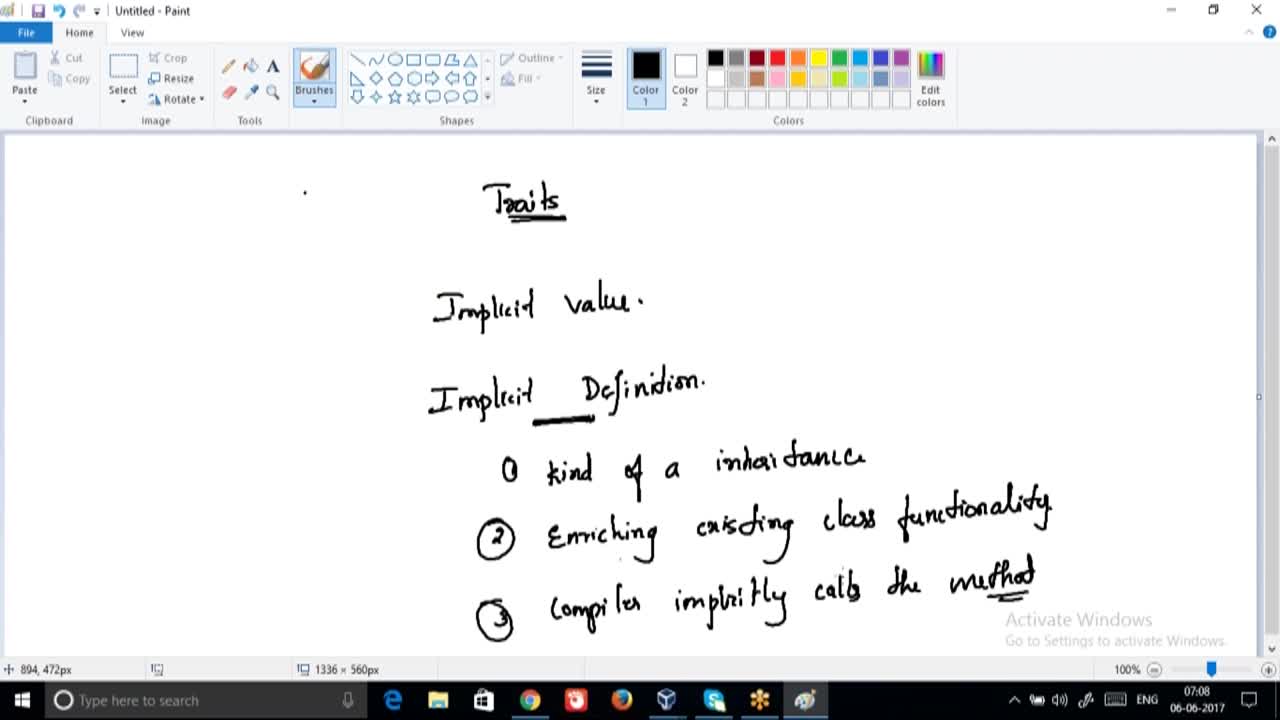 Untitled - Paint
File Home View
Paste
Cut
Copy
Clipboard
Select
Crop
Resize
Rotate
Image
Tools
Brushes
Shapes
Outline
Fill
Size
Color 1
Color 2
Colors
Edit colors
Traits
Implicit value.
Implicit Definition.
① kind of a inheritance
② Enriching existing class functionality
③ Compiler implicitly calls the method
Activate Windows
Go to Settings to activate Windows.
894, 472px
1336 × 560px
100%
Type here to search
ENG
07:08
06-06-2017